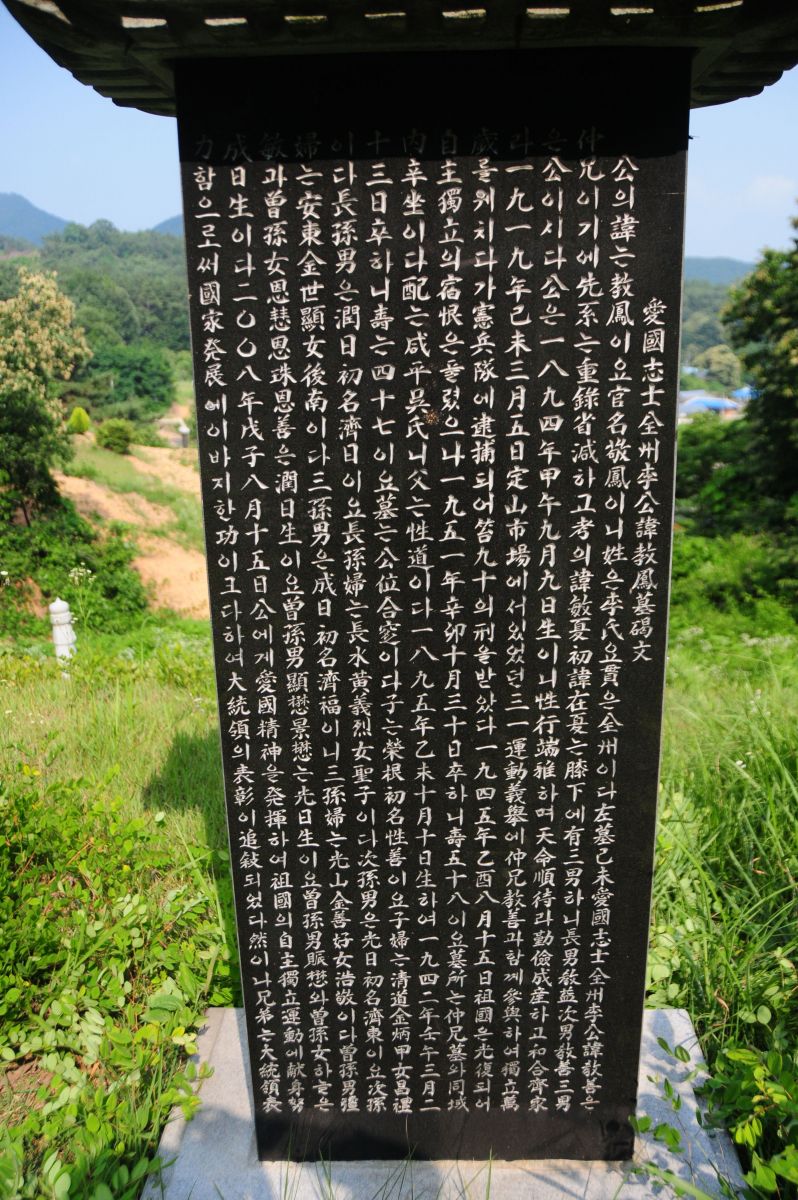 愛國志士全州李公諱教鳳墓碣文
公의諱는教鳳이요官名敬鳳이니姓은李氏요貫은全州이다左墓己未愛國志士全州李公諱教善은
仲兄이기에先系는重錄省減하고考의諱敏夏初諱在夏는膝下에有三男하니長男教益次男教善三男
은公이시다公은一八九四年甲午九月九日生이니性行端雅하며天命順待라勤儉成産하고和合齊家
라一九一九年己未三月五日定山市場에서있었던三一運動義擧에仲兄教善과함께參與하여獨立萬
歲를웨치다가憲兵隊에逮捕되어笞九十의刑을받았다一九四五年乙酉八月十五日祖國은光復되어
自主獨立의宿恨은풀렸으나一九五一年辛卯十月三十日卒하니壽五十八이요墓所는仲兄墓와同域
内辛坐이다配는咸平吳氏니父는性道이다一八九五年乙未十月十日生하여一九四二年壬午三月二
十三日卒하니壽는四十七이요墓는公位合窆이다子는榮根初名性善이요子婦는清道金炳甲女昌禮
이다長孫男은潤日初名濟日이요長孫婦는長水黃義烈女聖子이다次孫男은光日初名濟東이요次孫
婦는安東金世顯女後南이다三孫男은成日初名濟福이니三孫婦는光山金善好女浩敬이다曾孫男彊
敏과曾孫女恩慧恩珠恩善은潤日生이요曾孫男顯懋景懋는光日生이요曾孫男賑懋와曾孫女하늘은
成日生이다二○○八年戊子八月十五日公에게愛國精神을発揮하여祖國의自主獨立運動에献身努
力함으로써國家発展에이바지한功이크다하여大統領의表彰이追敍되었다然이나兄弟는大統領表